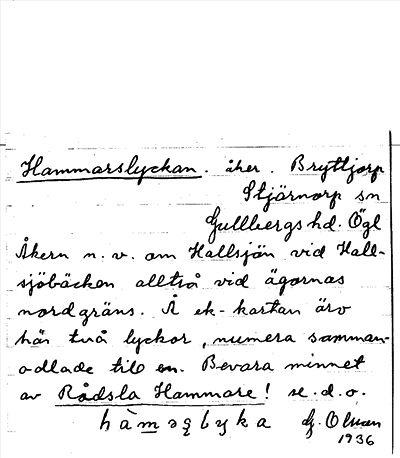 Hammarslyckan. åker. Bryttjorp
Stjärnorp sn
Gullbergs hd. Ögl
Åkern n.v. om Hallsjön vid Hall-
sjöbäcken alltså vid ägornas
nordgräns. Å ek-kartan äro
här två lyckor, numera samman-
odlade till en. Bevara minnet
av Rådsla Hammare! se.d.o.
G. Olson
1936